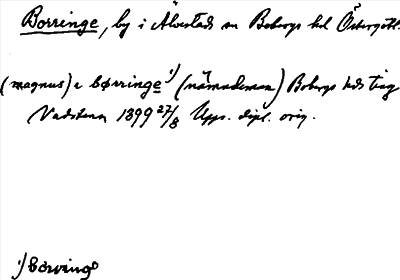 Borringe, by i Älvestads sn Bobergs hd Östergötl.
(magnus) e børringe ¹/ (nämndeman) Bobergs hds ting
Vadstena 1399 27/8 Upps. dipl. orig.
¹/ børringe